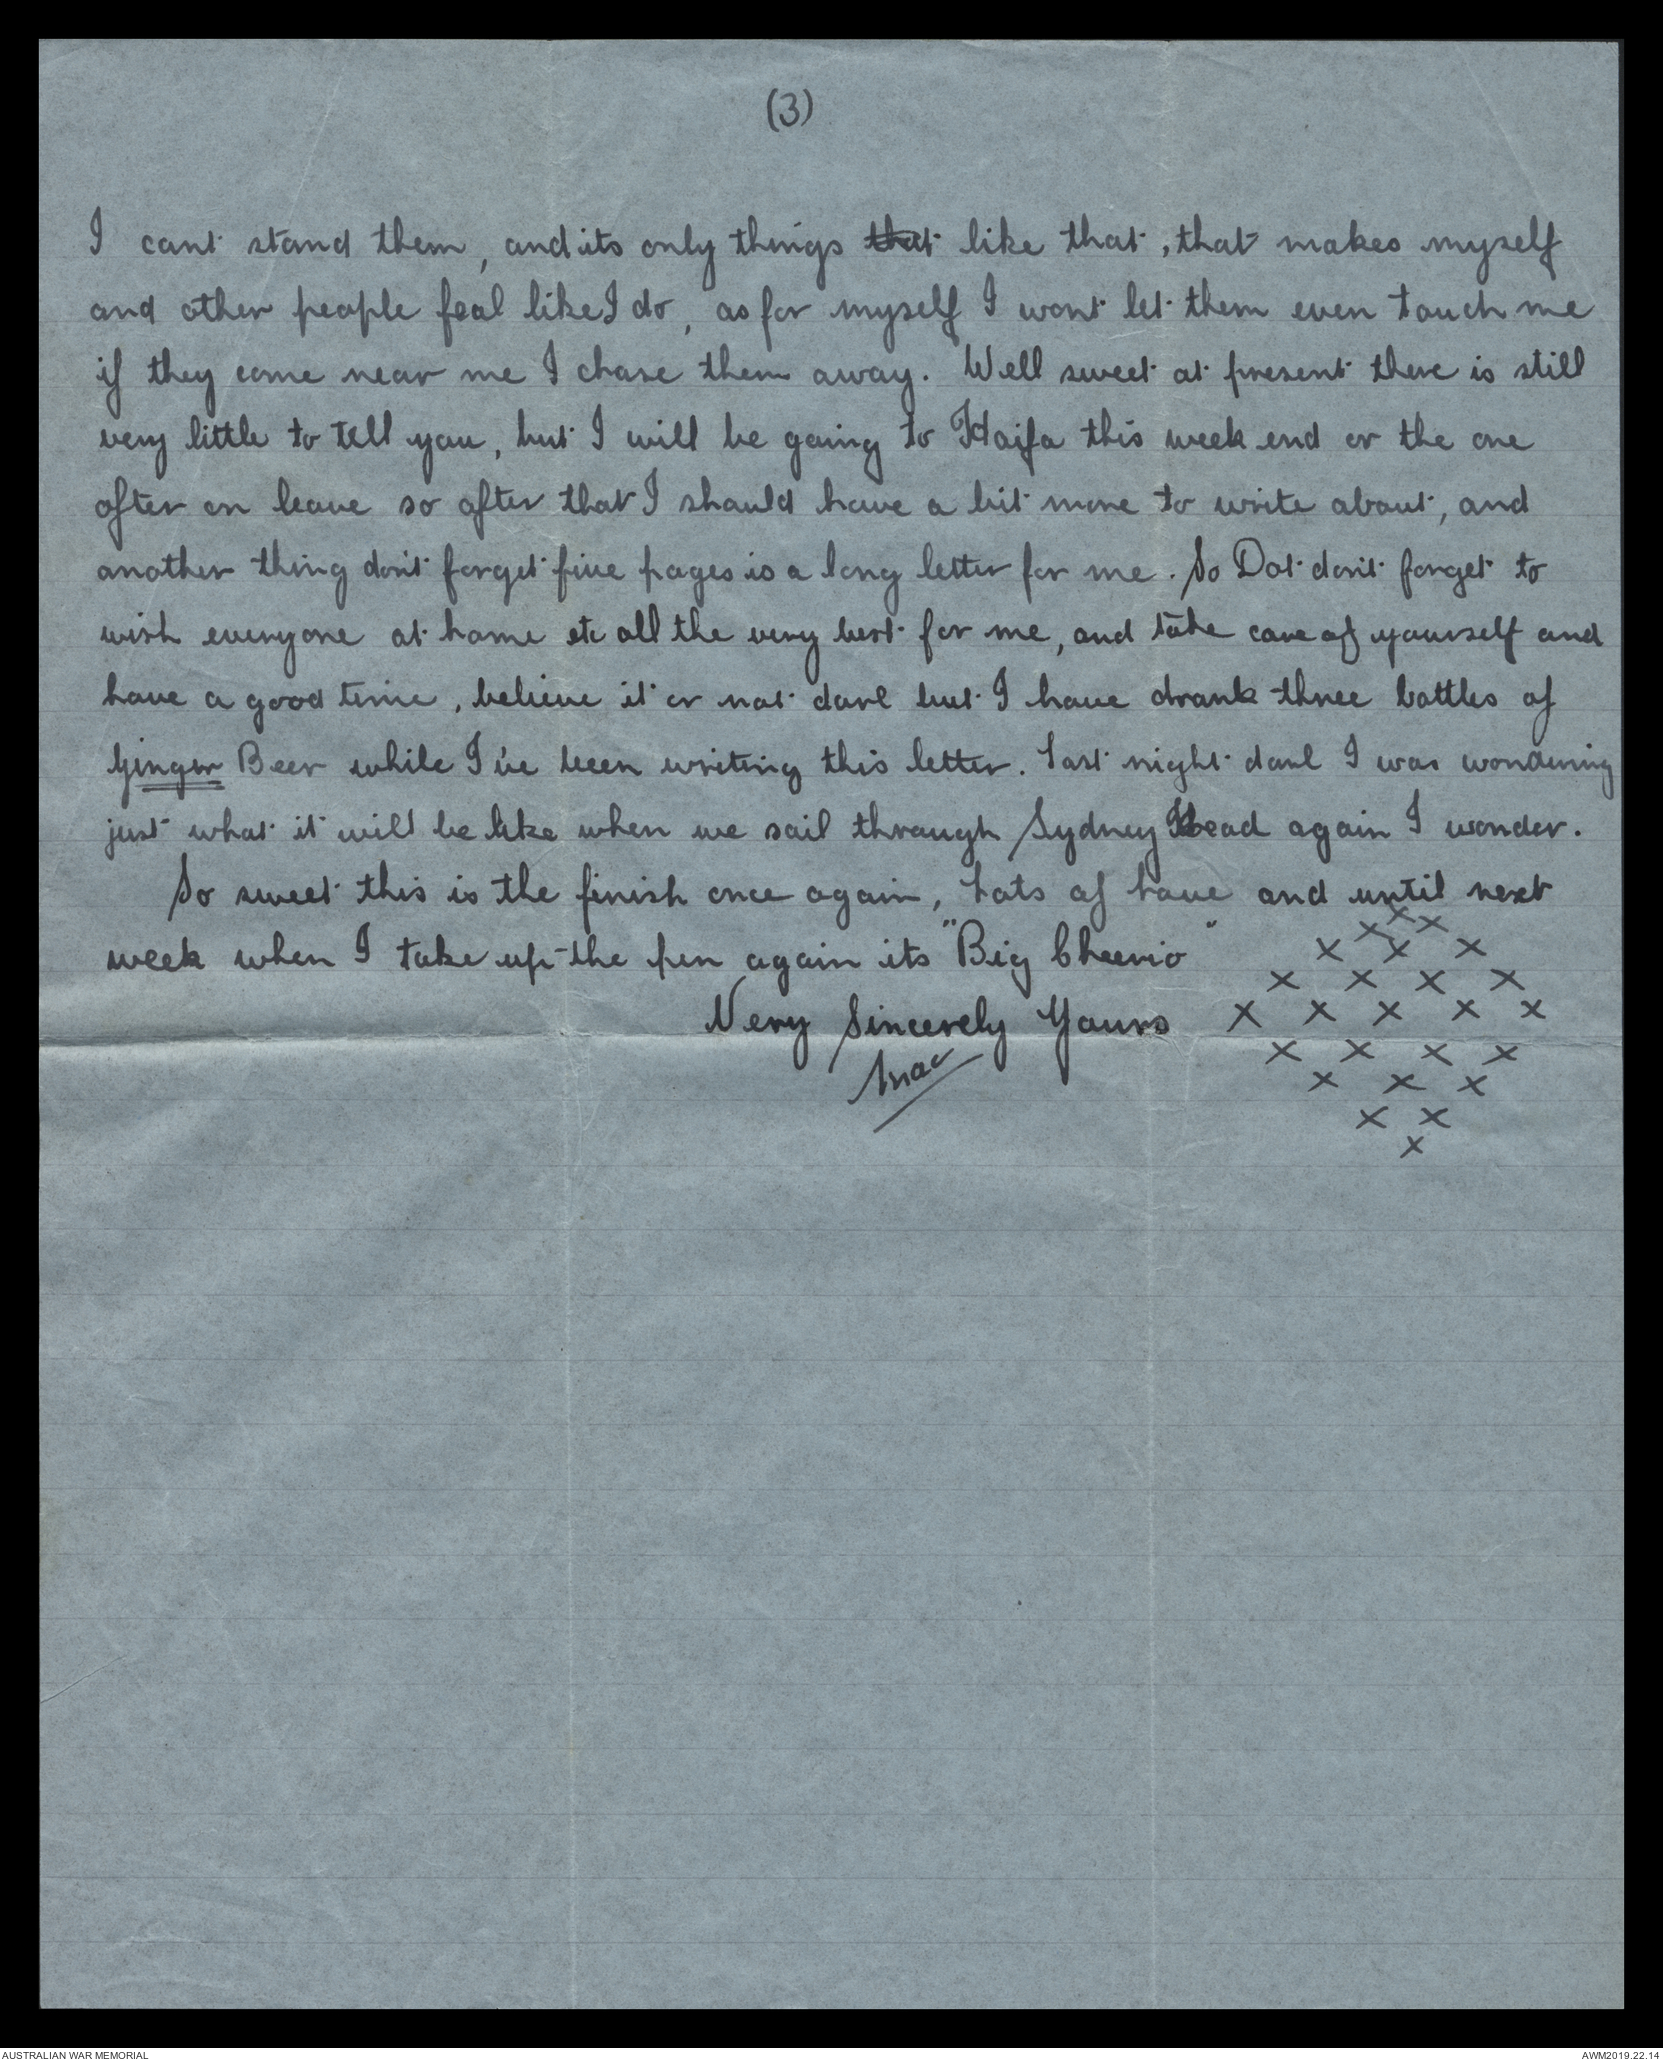 (3)
I cant stand them, and its only things that like that, that makes myself
and other people feal like I do, as for myself I wont let them even touch me
if they come near me I chase them away. Well sweet at present there is still
very little to tell you, but I will be going to Haifa this week end or the one
after on leave so after that I should have a bit more to write about, and
another thing don't forget five pages is a long letter for me. So Dot don't forget to
wish everyone at home etc all the very best for me, and take care of yourself and
have a good time, believe it or not darl but I have drank three bottles of
Ginger Beer while I've been writing this letter. Last night darl I was wondering
just what it will be like when we sail through Sydney Head again I wonder.
So sweet this is the finish once again, Lots of Love and until next
week when I take up the pen again its "Big Cheerio"
Very Sincerely Yours
Mac
x x x
x x x x
x x x x
x x x x x
x x x x
x x x
x x
x
AUSTRALIAN WAR MEMORIAL
AWM2019.22.14